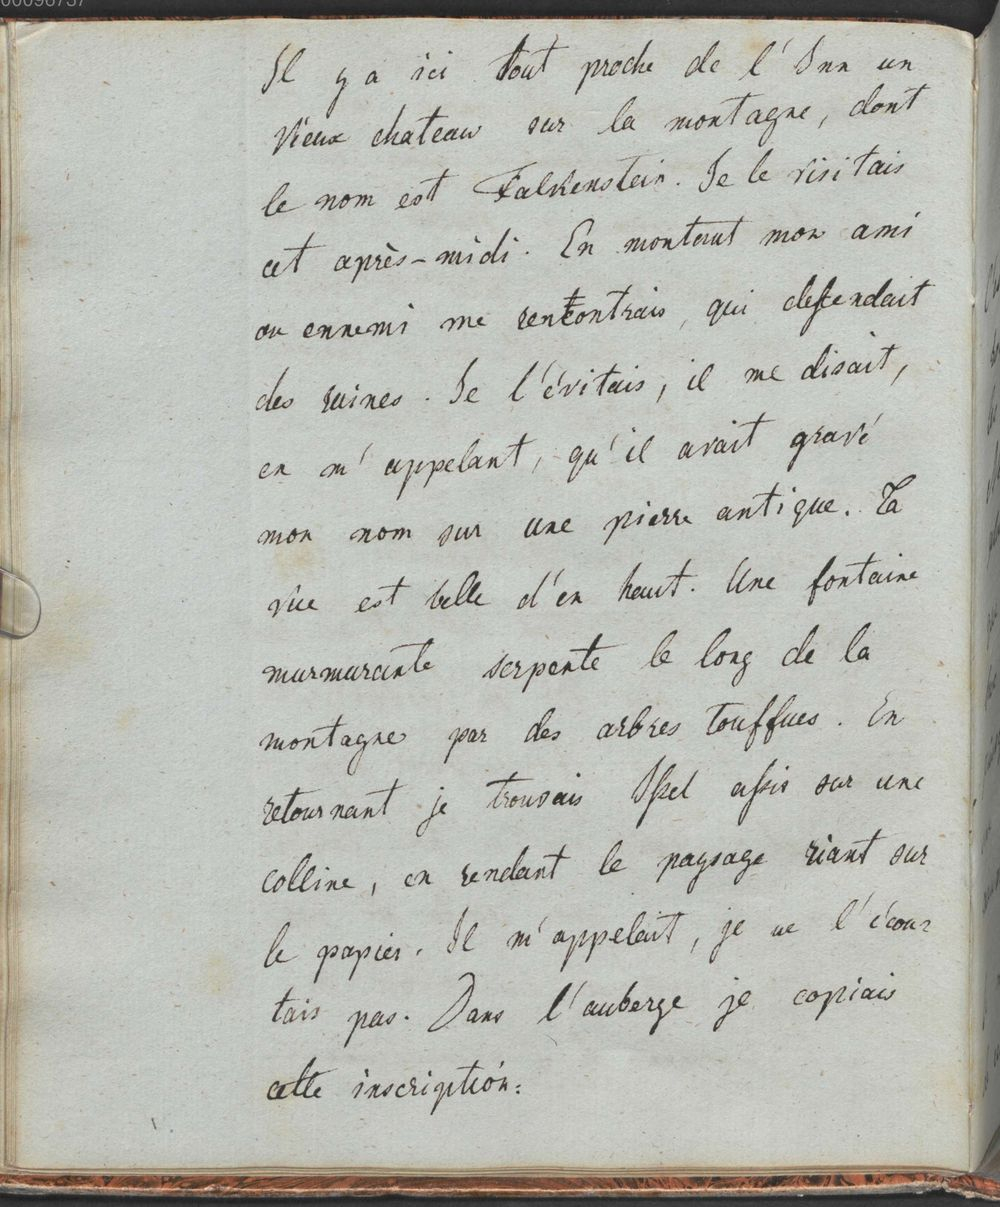 00096737
Il y a ici tout proche de l'Inn un
vieux chateau sur la montagne, dont
le nom est Falkenstein. Je le visitais
cet après-midi. En montant mon ami
ou ennemi me rencontrais, qui defendait
des ruines. Je l'évitais, il me disait,
en m'appelant, qu'il avait gravé
mon nom sur une pierre antique. La
vûe est belle d'en haut. Une fontaine
murmurante serpente le long de la
montagne par des arbres touffues. En
retournant je trouvais Issel assis sur une
colline, en rendant le paysage riant sur
le papier. Il m'appelait, je ne l'écou-
tais pas. Dans l'auberge je copiais
cette inscription: